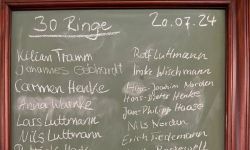 30 Ringe 20.07.24
Kilian Tramm
Johannes Gebhardt
Carmen Henke
Anna Warnke
Lars Luttmann
Nils Luttmann
Rolf Luttmann
Imke Wichmann
Hans-Joachim Norden
Hans-Dieter Henke
Jan-Philipp Haase
Nils Norden
Erich Tiedemann